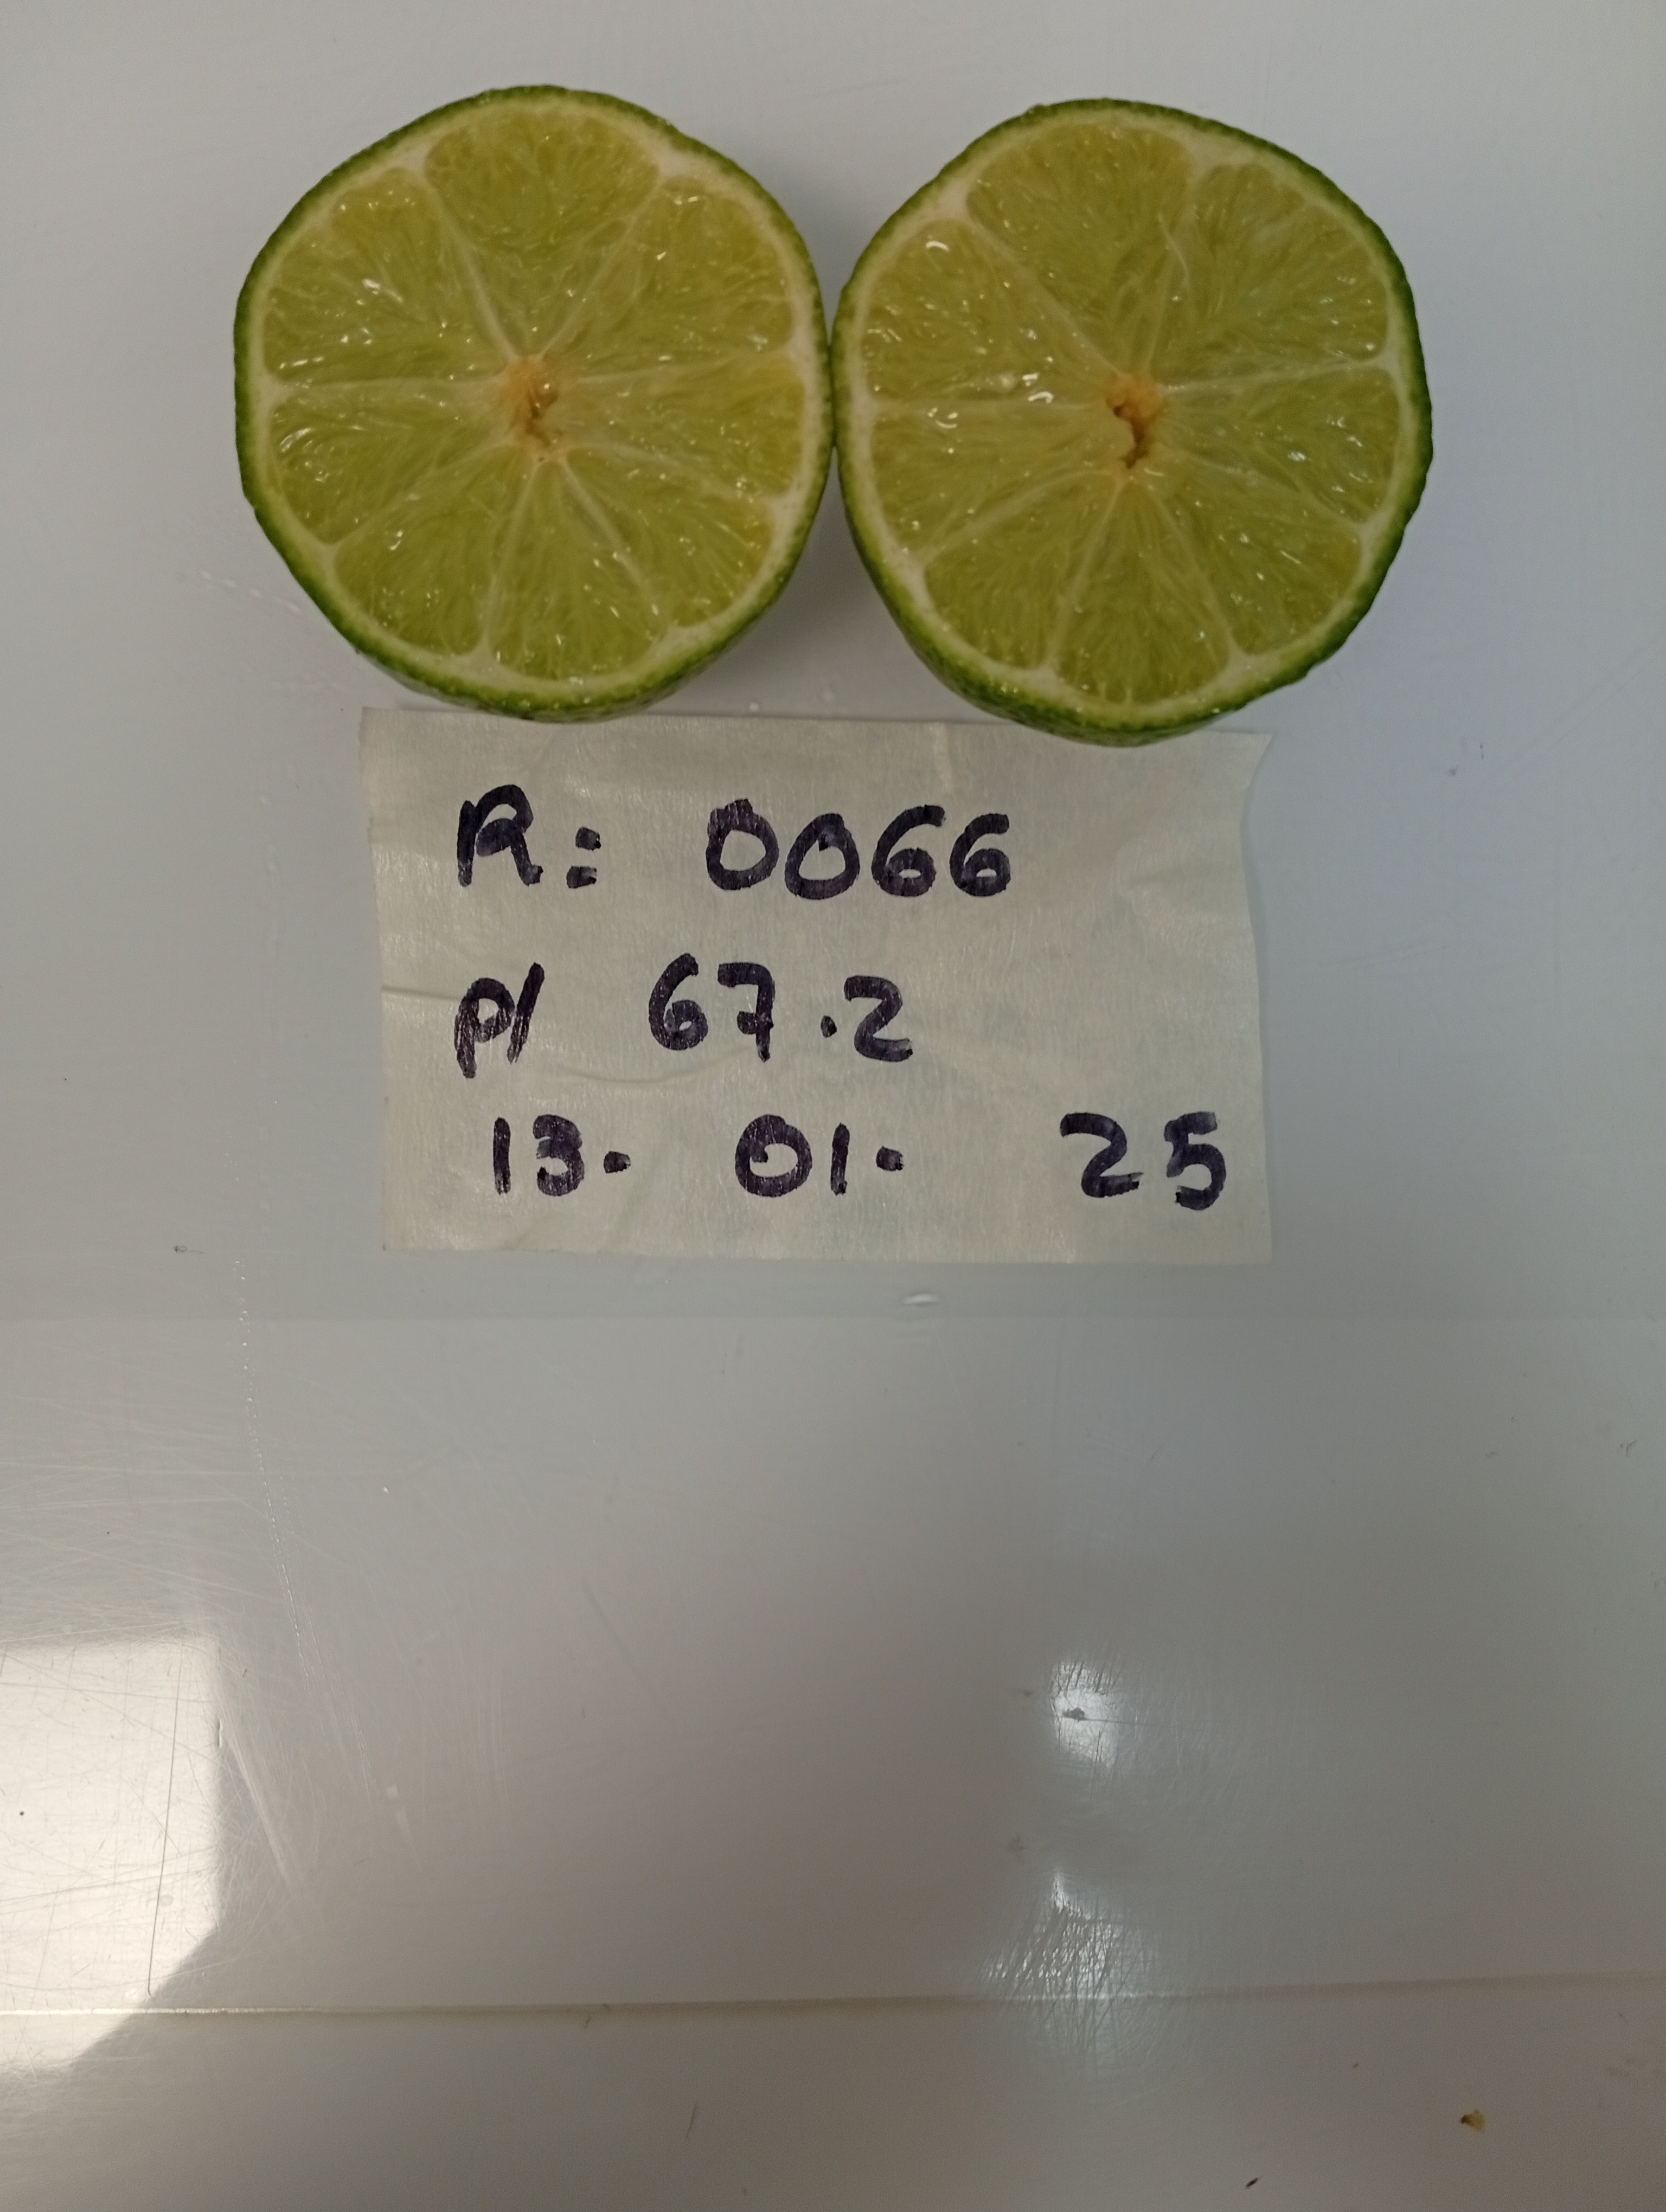 R: 0066
p/ 67.2
13. 01. 25